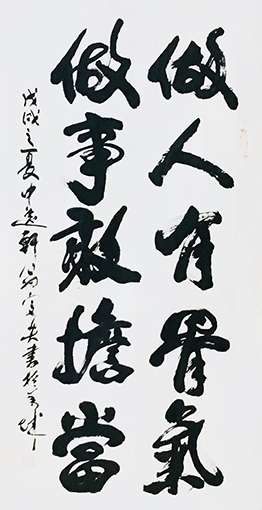 做人有骨氣
做事敢擔當
戊戌之夏中
書於